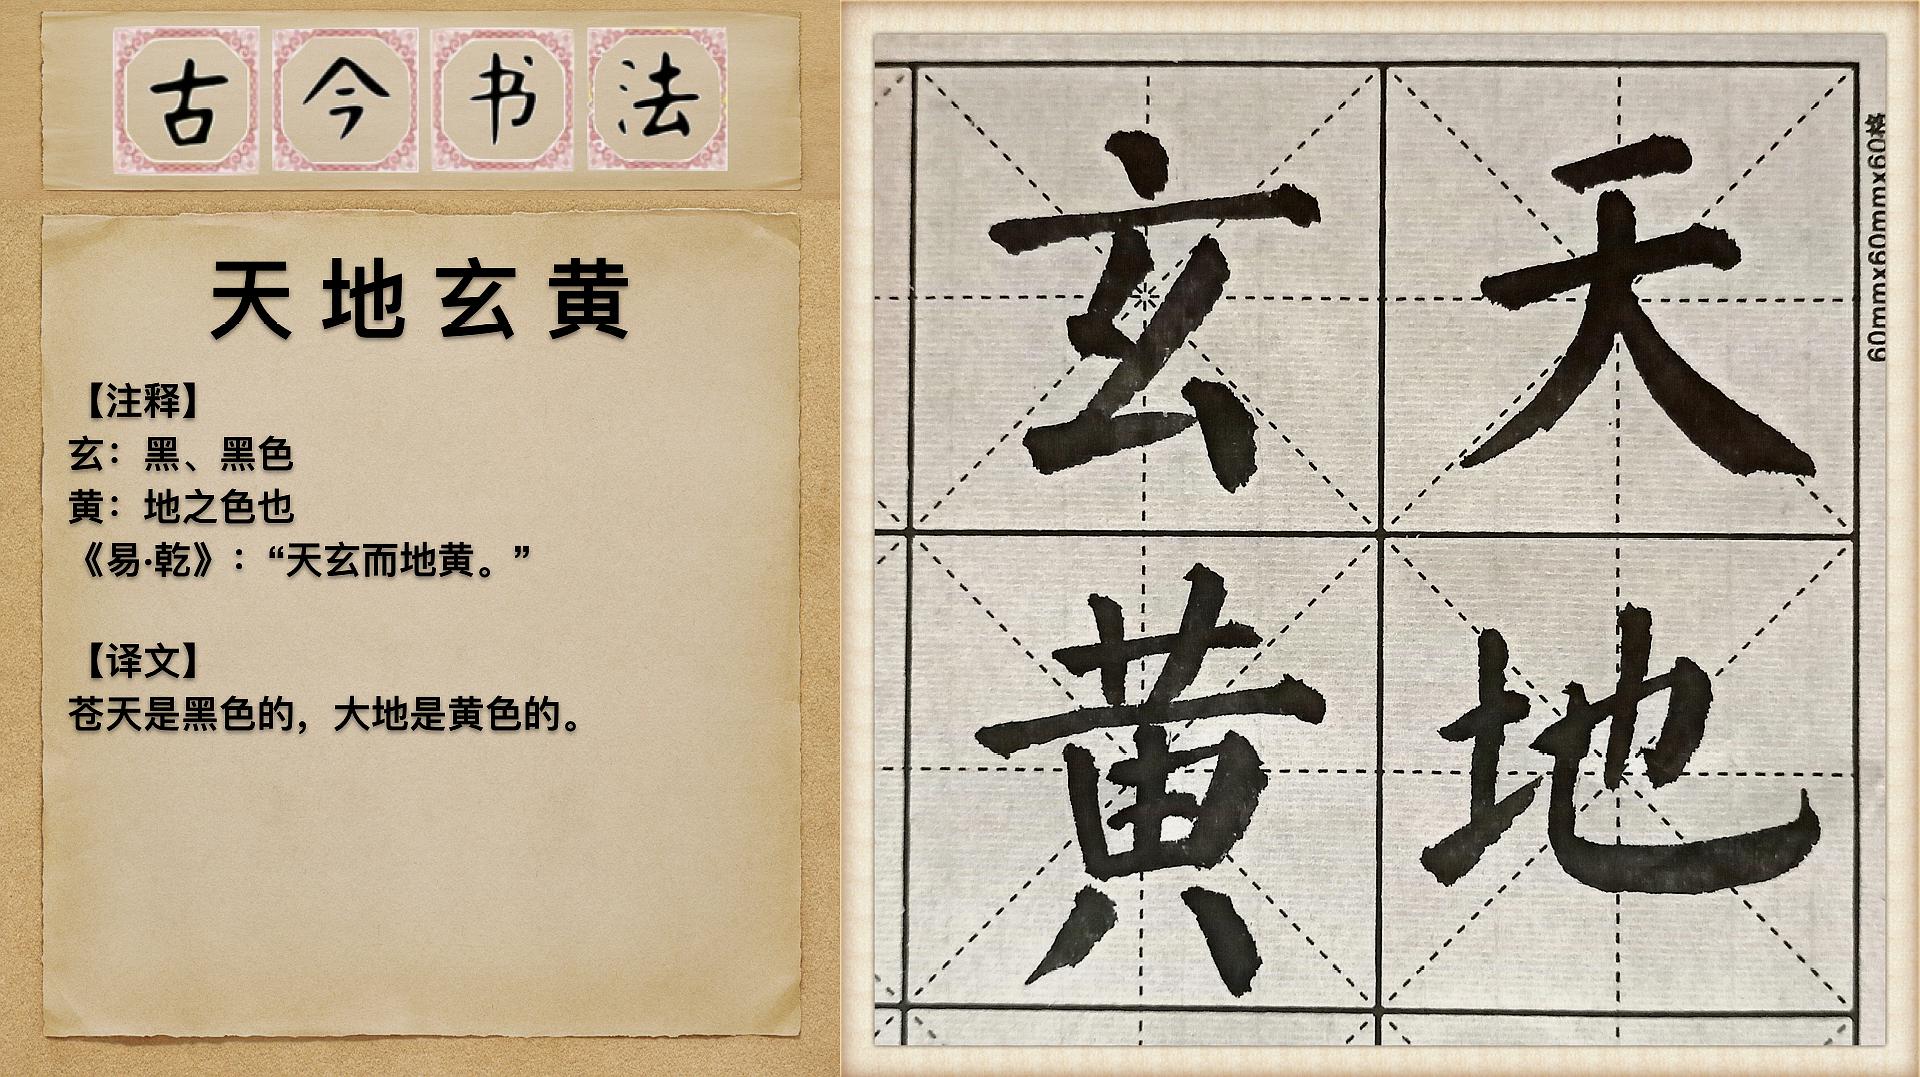 古今书法
天地玄黄
【注释】
玄：黑、黑色
黄：地之色也
《易·乾》：“天玄而地黄。”
【译文】
苍天是黑色的，大地是黄色的。
天地
玄黄
60mmx60mmx60格